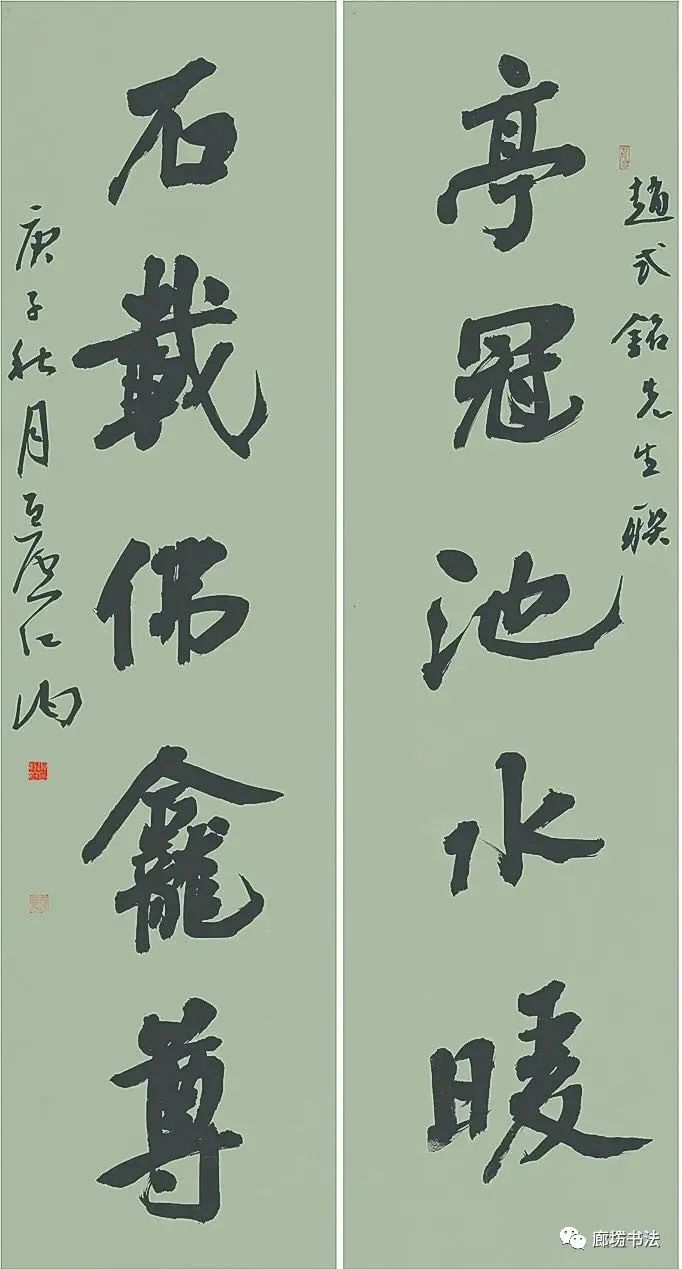 趙式銘先生聯
亭冠池水暖
石載佛龕尊
庚子秋月
廊坊书法